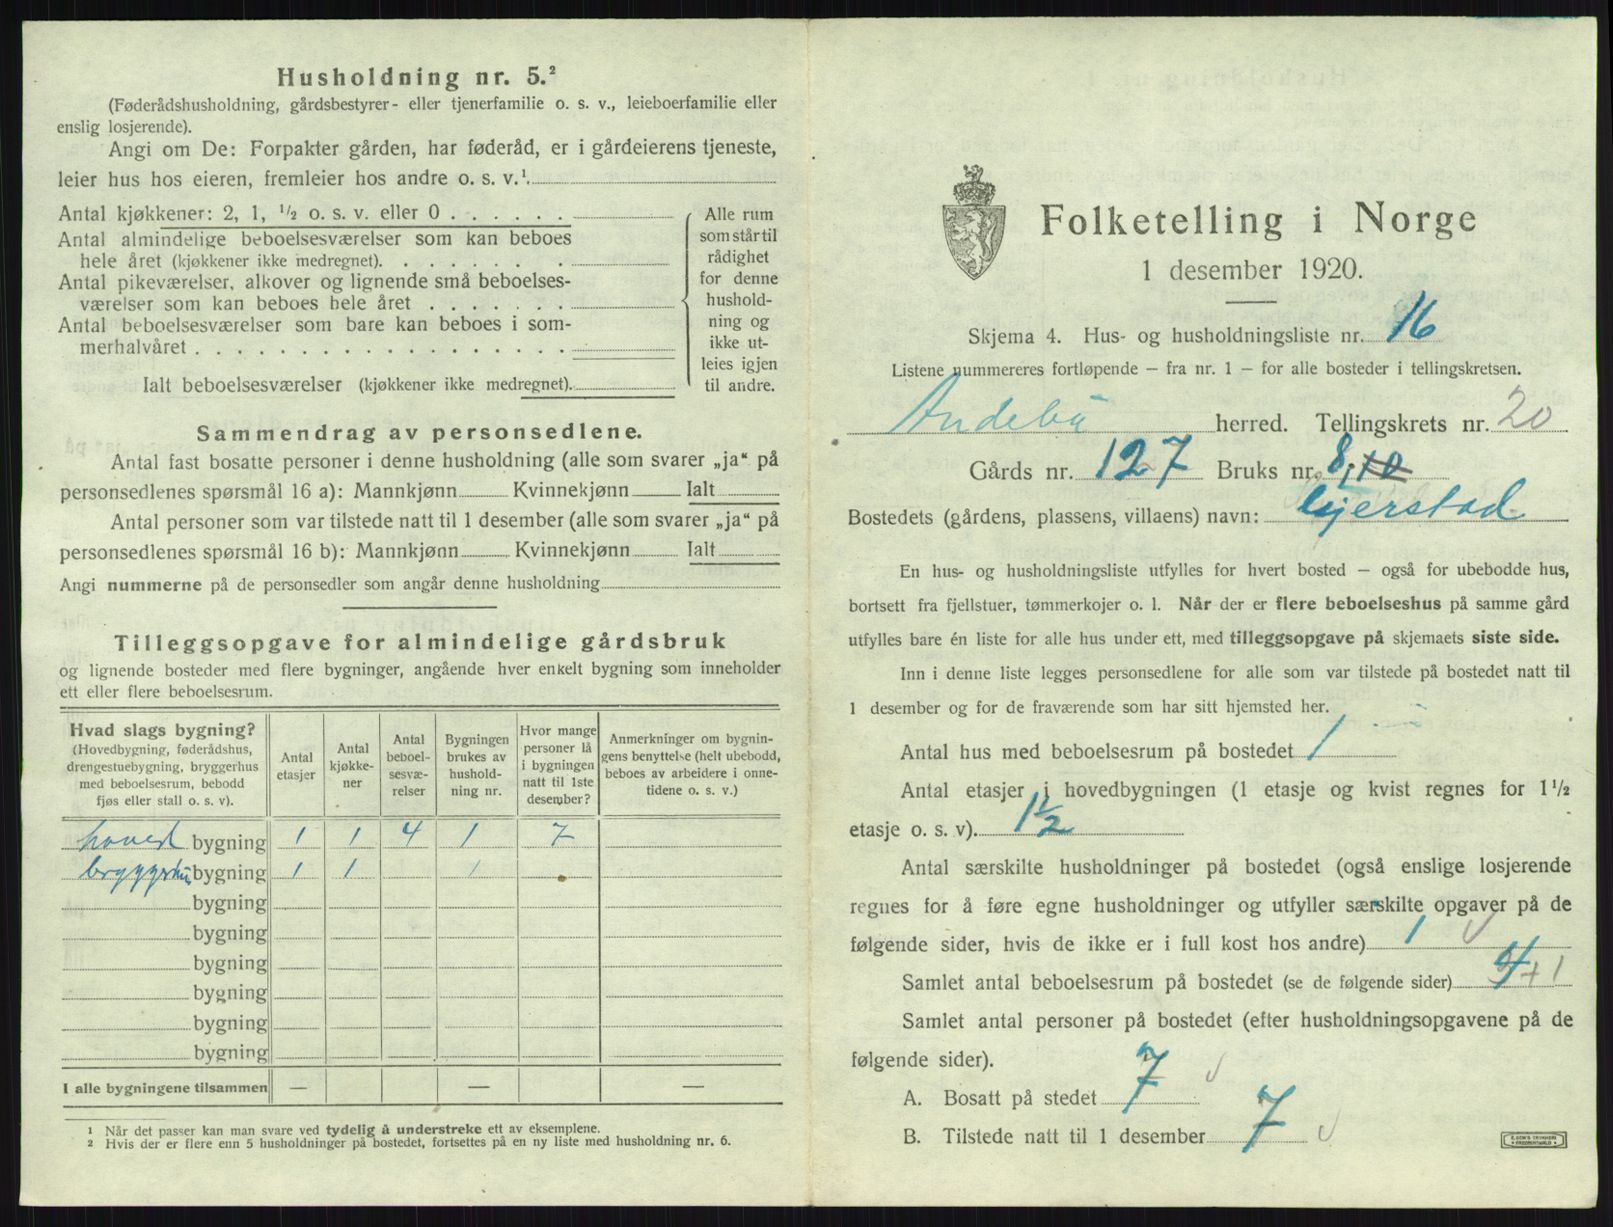 Husholdning nr. 5.²
(Føderådshusholdning, gårdsbestyrer- eller tjenerfamilie o. s. v., leieboerfamilie eller
enslig losjerende).
Angi om De: Forpakter gården, har føderåd, er i gårdeierens tjeneste,
leier hus hos eieren, fremleier hos andre o. s. v.¹
Antal kjøkkener: 2, 1, ½ o. s. v. eller 0 . . . . . .
Antal almindelige beboelsesværelser som kan beboes
hele året (kjøkkener ikke medregnet). . . . . . . .
Antal pikeværelser, alkover og lignende små beboelses-
værelser som kan beboes hele året . . . . . . .
Antal beboelsesværelser som bare kan beboes i som-
merhalvåret . . . . . . . . . . . . . . . . . .
Ialt beboelsesværelser (kjøkkener ikke medregnet).
Alle rum
som står til
rådighet
for denne
hushold-
ning og
ikke ut-
leies igjen
til andre.
Sammendrag av personsedlene.
Antal fast bosatte personer i denne husholdning (alle som svarer „ja“ på
personsedlenes spørsmål 16 a): Mannkjønn Kvinnekjønn Ialt
Antal personer som var tilstede natt til 1 desember (alle som svarer „ja“ på
personsedlenes spørsmål 16 b): Mannkjønn Kvinnekjønn Ialt
Angi nummerne på de personsedler som angår denne husholdning
Tilleggsopgave for almindelige gårdsbruk
og lignende bosteder med flere bygninger, angående hver enkelt bygning som inneholder
ett eller flere beboelsesrum.
Hvad slags bygning?
(Hovedbygning, føderådshus,
drengestuebygning, bryggerhus
med beboelsesrum, bebodd
fjøs eller stall o. s. v).
Antal
etasjer
Antal
kjøkke-
ner
Antal
beboel-
sesvæ-
relser
Bygningen
brukes av
hushold-
ning nr.
Hvor mange
personer lå
i bygningen
natt til 1ste
desember?
Anmerkninger om bygnin-
gens benyttelse (helt ubebodd,
beboes av arbeidere i onne-
tidene o. s. v.)
hoved bygning 1 1 4 1 7
bryggrhus bygning 1 1 1
bygning
bygning
bygning
bygning
bygning
bygning
I alle bygningene tilsammen — — —
¹ Når det passer kan man svare ved tydelig å understreke ett av eksemplene.
² Hvis der er flere enn 5 husholdninger på bostedet, fortsettes på en ny liste med husholdning nr. 6.
Folketelling i Norge
1 desember 1920.
Skjema 4. Hus- og husholdningsliste nr. 16
Listene nummereres fortløpende — fra nr. 1 — for alle bosteder i tellingskretsen.
Andebu herred. Tellingskrets nr. 20
Gårds nr. 127 Bruks nr. 8, 10
Bostedets (gårdens, plassens, villaens) navn: Gjerstad
En hus- og husholdningsliste utfylles for hvert bosted — også for ubebodde hus,
bortsett fra fjellstuer, tømmerkojer o. l. Når der er flere beboelseshus på samme gård
utfylles bare én liste for alle hus under ett, med tilleggsopgave på skjemaets siste side.
Inn i denne liste legges personsedlene for alle som var tilstede på bostedet natt til
1 desember og for de fraværende som har sitt hjemsted her.
Antal hus med beboelsesrum på bostedet 1
Antal etasjer i hovedbygningen (1 etasje og kvist regnes for 1½
etasje o. s. v). 1½
Antal særskilte husholdninger på bostedet (også enslige losjerende
regnes for å føre egne husholdninger og utfyller særskilte opgaver på de
følgende sider, hvis de ikke er i full kost hos andre) 1
Samlet antal beboelsesrum på bostedet (se de følgende sider) 4+1
Samlet antal personer på bostedet (efter husholdningsopgavene på de
følgende sider).
A. Bosatt på stedet 7
B. Tilstede natt til 1 desember 7